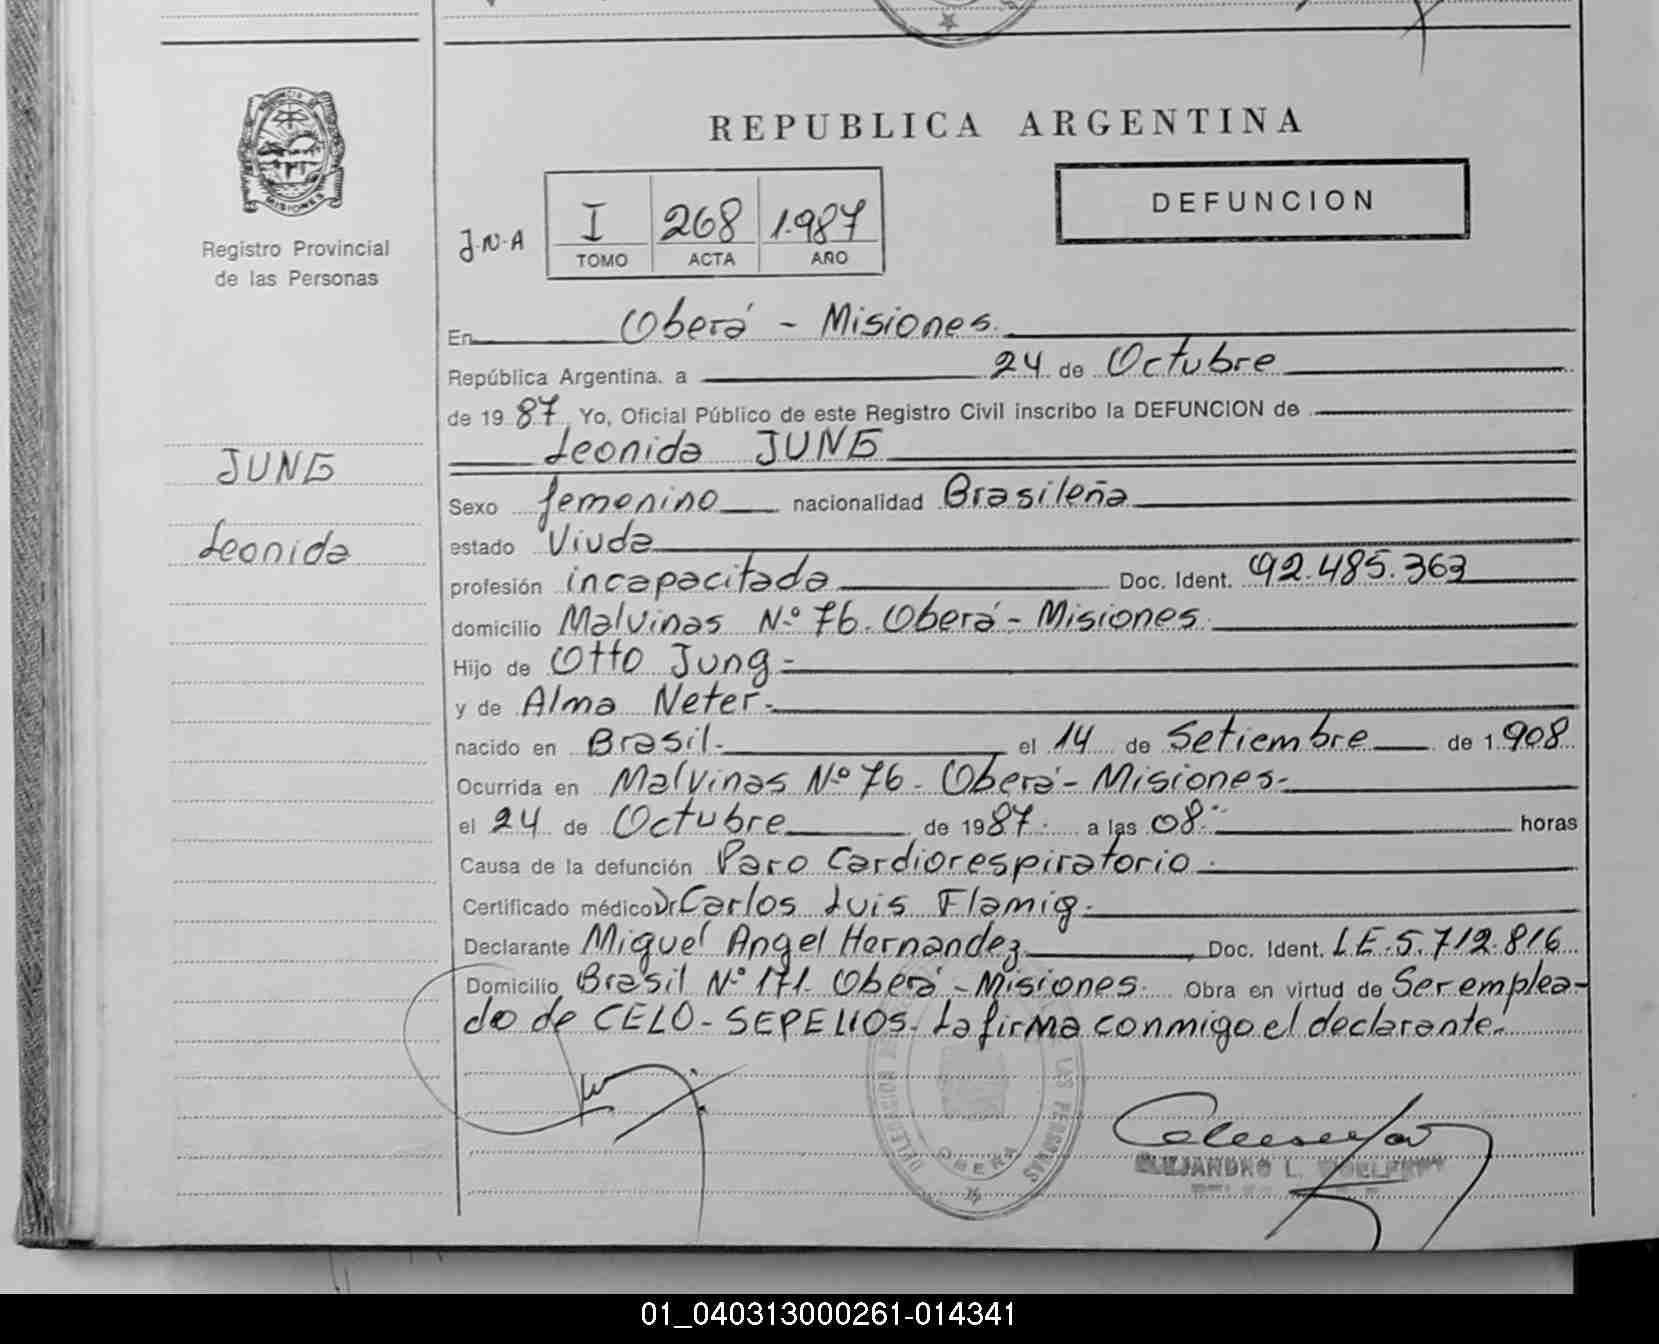 PROVINCIA DE
MISIONES
Registro Provincial
de las Personas
JUNG
Leonida
REPUBLICA ARGENTINA
DEFUNCION
J.N.A
I 268 1.987
TOMO ACTA AÑO
En Oberá - Misiones.
República Argentina, a 24 de Octubre
de 1987, Yo, Oficial Público de este Registro Civil inscribo la DEFUNCION de
Leonida JUNG
Sexo femenino nacionalidad Brasileña
estado Viuda
profesión incapacitada Doc. Ident. 92.485.363
domicilio Malvinas Nº 76. Oberá - Misiones.
Hijo de Otto Jung-
y de Alma Neter.
nacido en Brasil. el 14 de Setiembre de 1.908
Ocurrida en Malvinas Nº 76. Oberá - Misiones-
el 24 de Octubre de 1987. a las 08.- horas
Causa de la defunción Paro Cardiorespiratorio.
Certificado médico Dr Carlos Luis Flamig.
Declarante Miguel Angel Hernandez, Doc. Ident. L.E. 5.712.816
Domicilio Brasil Nº 171. Oberá - Misiones. Obra en virtud de Ser emplea-
do de CELO - SEPELIOS. La firma conmigo el declarante.
LAS PERSONAS
OBERA
ALEJANDRO L.
01_040313000261-014341